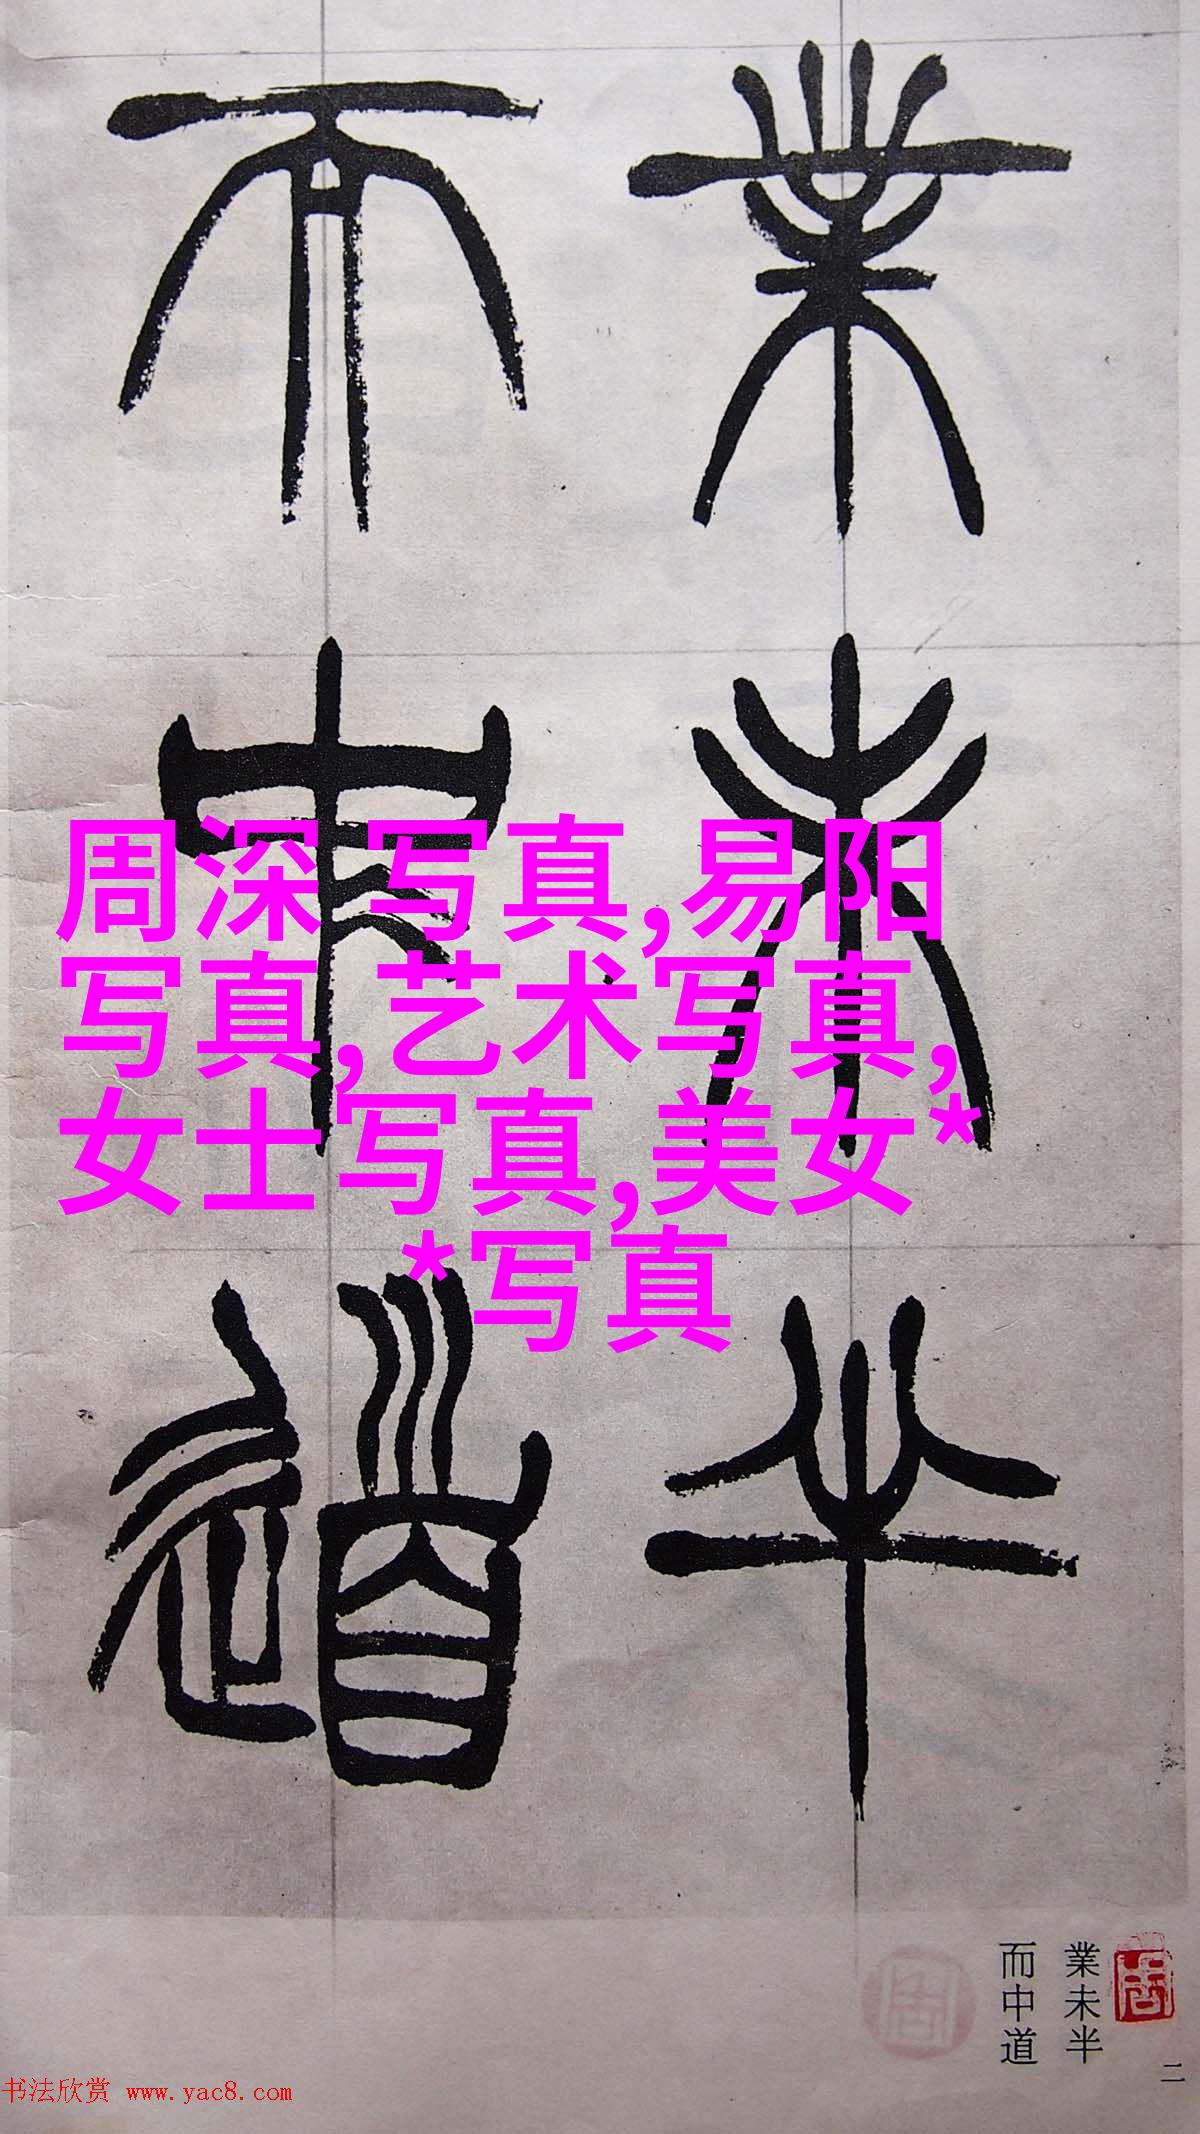 業未半
而中道
周深 写真,易阳
写真,艺术写真,
女士写真,美女*
*写真
業未半
而中道
二
书法欣赏 www.yac8.com